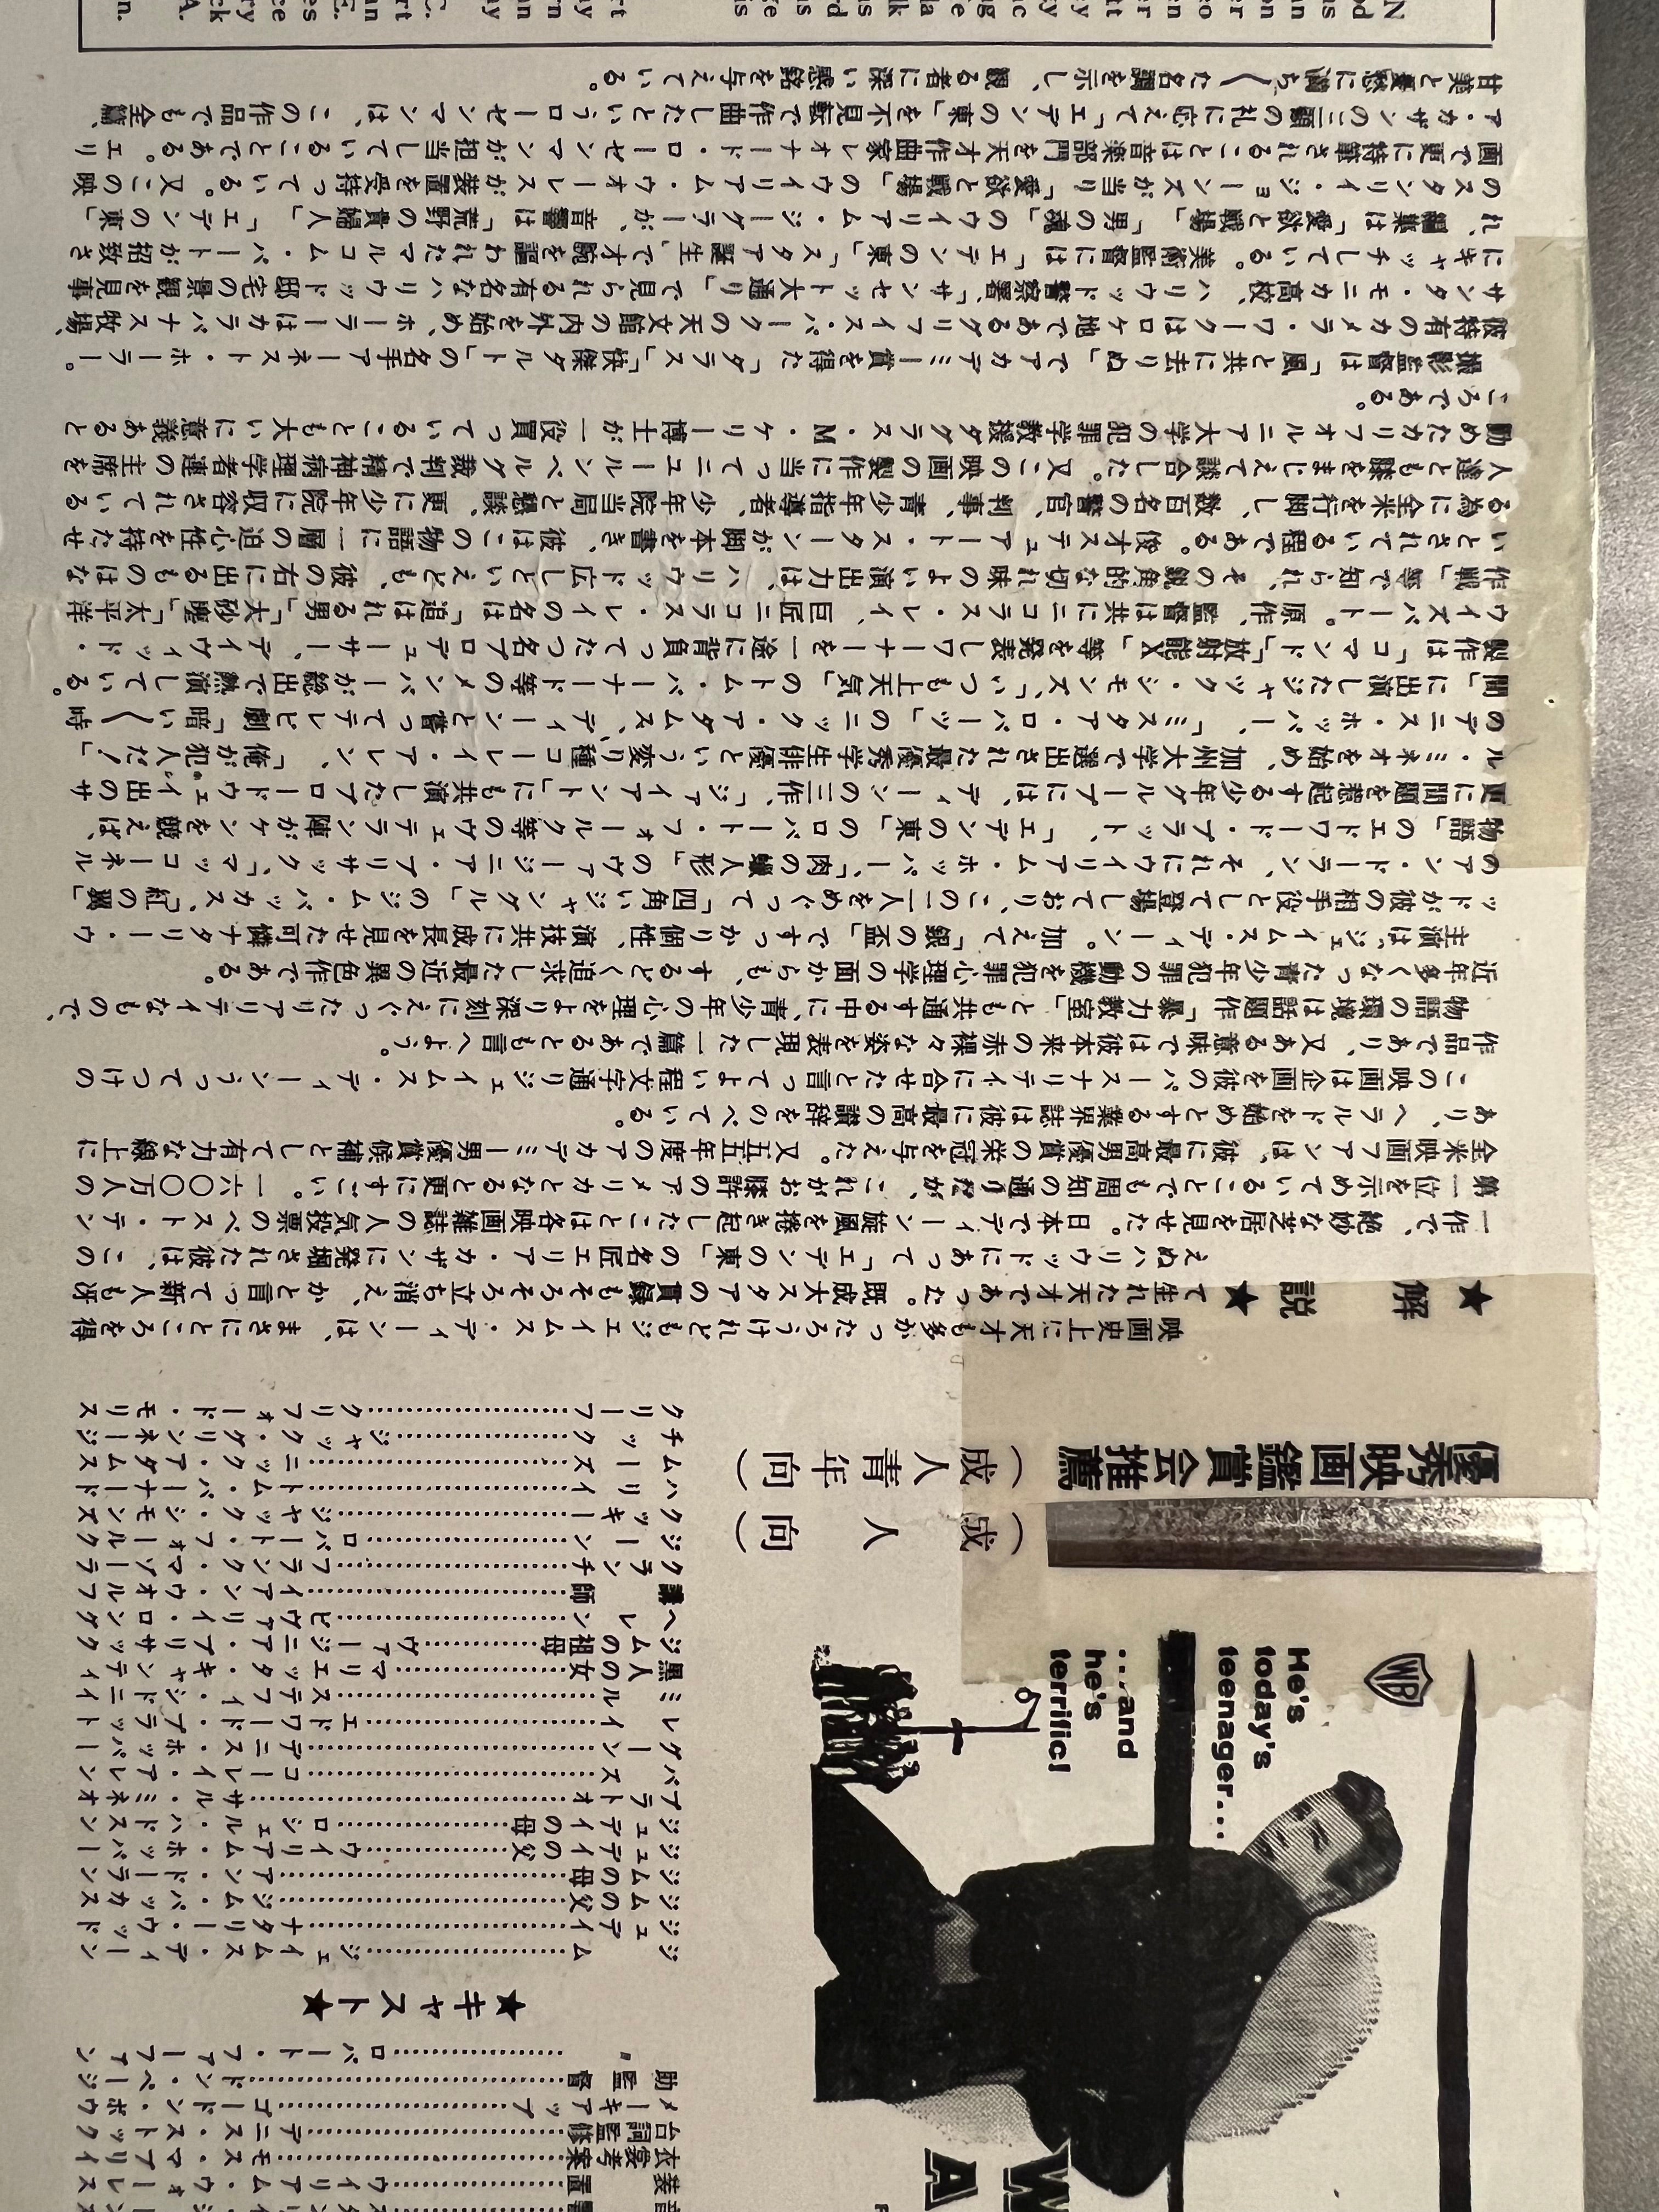 He's
today's
teenager...
...and
he's
terrific!
WB
装置……ウイリアム・ウォーレス
衣裳考案……モス・マブリイ
台詞監修……デニス・ストック
メーキアップ……ゴードン・ボウ
助監督……ドン・ページ
〃……ロバート・ファーファン
★キャスト★
ジム……ジェイムス・ディーン
ジュディ……ナタリー・ウッド
ジムの父……ジム・バッカス
ジムの母……アン・ドーラン
ジュディの父……ウイリアム・ホッパー
ジュディの母……ロシェル・ハドスン
プラトオ……サル・ミネオ
バズ……コーレイ・アレン
グーン……デニス・ホッパー
レイ……エドワード・プラット
ミル……ステフィ・シドニイ
黒人の女……マリエッタ・キャンティ
ジムの祖母……ヴァージニア・ブリサック
ヘレン……ビヴァリイ・ロング
講師……イアン・ウオルフ
クランチ……フランク・マゾーラ
ジーン……ロバート・フォールク
クッキー……ジャック・シモンズ
ハリイ……トム・バーナード
ムーズ……ニック・アダムス
チック……ジャック・グリンネージ
クリフ……クリフォード・モリス
(成人向)
優秀映画鑑賞会推薦(成人青年向)
★解説★
映画史上に天才も多かったろうけれどもジェイムス・ディーンは、まさにところを得
て生れた天才であった。既成大スタアの貫録もそろそろ立ち消え、かと言って新人も冴
えぬハリウッドにあって「エデンの東」の名匠エリア・カザンに発掘された彼は、この
一作で、絶妙な芝居を見せた。日本でディーン旋風を捲き起したことは各映画雑誌の人気投票のベスト・テン
第一位を示めていることでも周知の通りだが、これがお膝許のアメリカとなると更にすごい。一六〇〇万人の
全米映画ファンは、彼に最高男優賞の栄冠を与えた。又五五年度のアカデミー男優賞候補として有力な線上に
あり、ヘラルドを始めとする業界誌は彼に最高の讃辞をのべている。
この映画は企画を彼のパースナリティに合せたと言ってよい程文字通りジェイムス・ディーンうってつけの
作品であり、又ある意味では彼本来の赤裸々な姿を表現した一篇であるとも言へよう。
物語の環境は話題作「暴力教室」とも共通する中に、青少年の心理をより深刻にえぐったリアリティなもので、
近年多くなった青少年犯罪の動機を犯罪心理学の面からも、するどく追求した最近の異色作である。
主演は、ジェイムス・ディーン。加えて「銀の盃」ですっかり個性、演技共に成長を見せた可憐ナタリー・ウ
ッドが彼の相手役として登場しており、この二人をめぐって「四角いジャングル」のジム・バッカス、「紅の翼」
のアン・ドーラン、それにウイリアム・ホッパー、「肉の蝋人形」のヴァージニア・ブリサック、「マッコーネル
物語」のエドワード・プラット、「エデンの東」のロバート・フォールク等のヴェテラン陣がケンを競えば、
更に問題を惹起する少年グループには、ディーンの三作、「ジァイアント」にも共演したブロードウェイ出のサ
ル・ミネオを始め、加州大学で選出された最優秀学生俳優という変り種コーレイ・アレン、「俺が犯人だ!」
のデニス・ホッパー、「ミスタア・ロバーツ」のニック・アダムス、ディーンと嘗ってテレビ劇「暗い〱時
間」に出演したジャック・シモンズ、「いつも上天気」のトム・バーナード等のメンバーが総出で熱演している。
製作は「コマンド」「放射能X」等を発表しワーナーを一途に背負ってたつ名プロデューサー、デイヴィッド・
ウイズバート。原作、監督は共にニコラス・レイ、巨匠ニコラス・レイの名は「追はれる男」「大砂塵」「太平洋
作戦」等で知られ、その鋭角的な切れ味のよい演出力は、ハリウッド広しといえども、彼の右に出るものはな
いとされている程である。俊才ステュアート・スターンが脚本を書き、彼はこの物語に一層の迫心性を持たせ
る為に全米を行脚し、数百名の警官、判事、青少年指導者、少年院当局と懇談、更に少年院に収容されている
人達とも膝をまじえて談合した。又この映画の製作に当ってニュールンベルグ裁判で精神病理学者連の主席を
勤めたカリフォルニア大学の犯罪学教授ダグラス・M・ケリー博士が一役買っていることも大いに意義あると
ころである。
撮影監督は「風と共に去りぬ」でアカデミー賞を得た「ダラス」「快傑ダルド」の名手アーネスト・ホーラー。
彼特有のカメラ・ワークはロケ地であるグリフイス・パークの天文館の内外を始め、ホーラーはカラバナス牧場、
サンタ・モニカ高校、ハリウッド警察署、「サンセット大通り」で見られる有名なハリウッド邸宅の景観を見事
にキャッチしている。美術監督には「エデンの東」「スタア誕生」で才腕を謳われたマルコム・バートが招致さ
れ、編集は「愛欲と戦場」「男の魂」のウイリアム・ジーグラーが、音響は「荒野の貴婦人」「エデンの東」
のスタンリイ・ジョーンズが当り「愛欲と戦場」のウイリアム・ウォーレスが装置を受持っている。又この映
画で更に特筆されることは音楽部門を天才作曲家レオナード・ローゼンマンが担当していることである。エリ
ア・カザンの三顧の礼に応えて「エデンの東」を不見転で作曲したというローゼンマンは、この作品でも全篇、
甘美と憂愁に満ち〱た名調を示し、観る者に深い感銘を与えている。